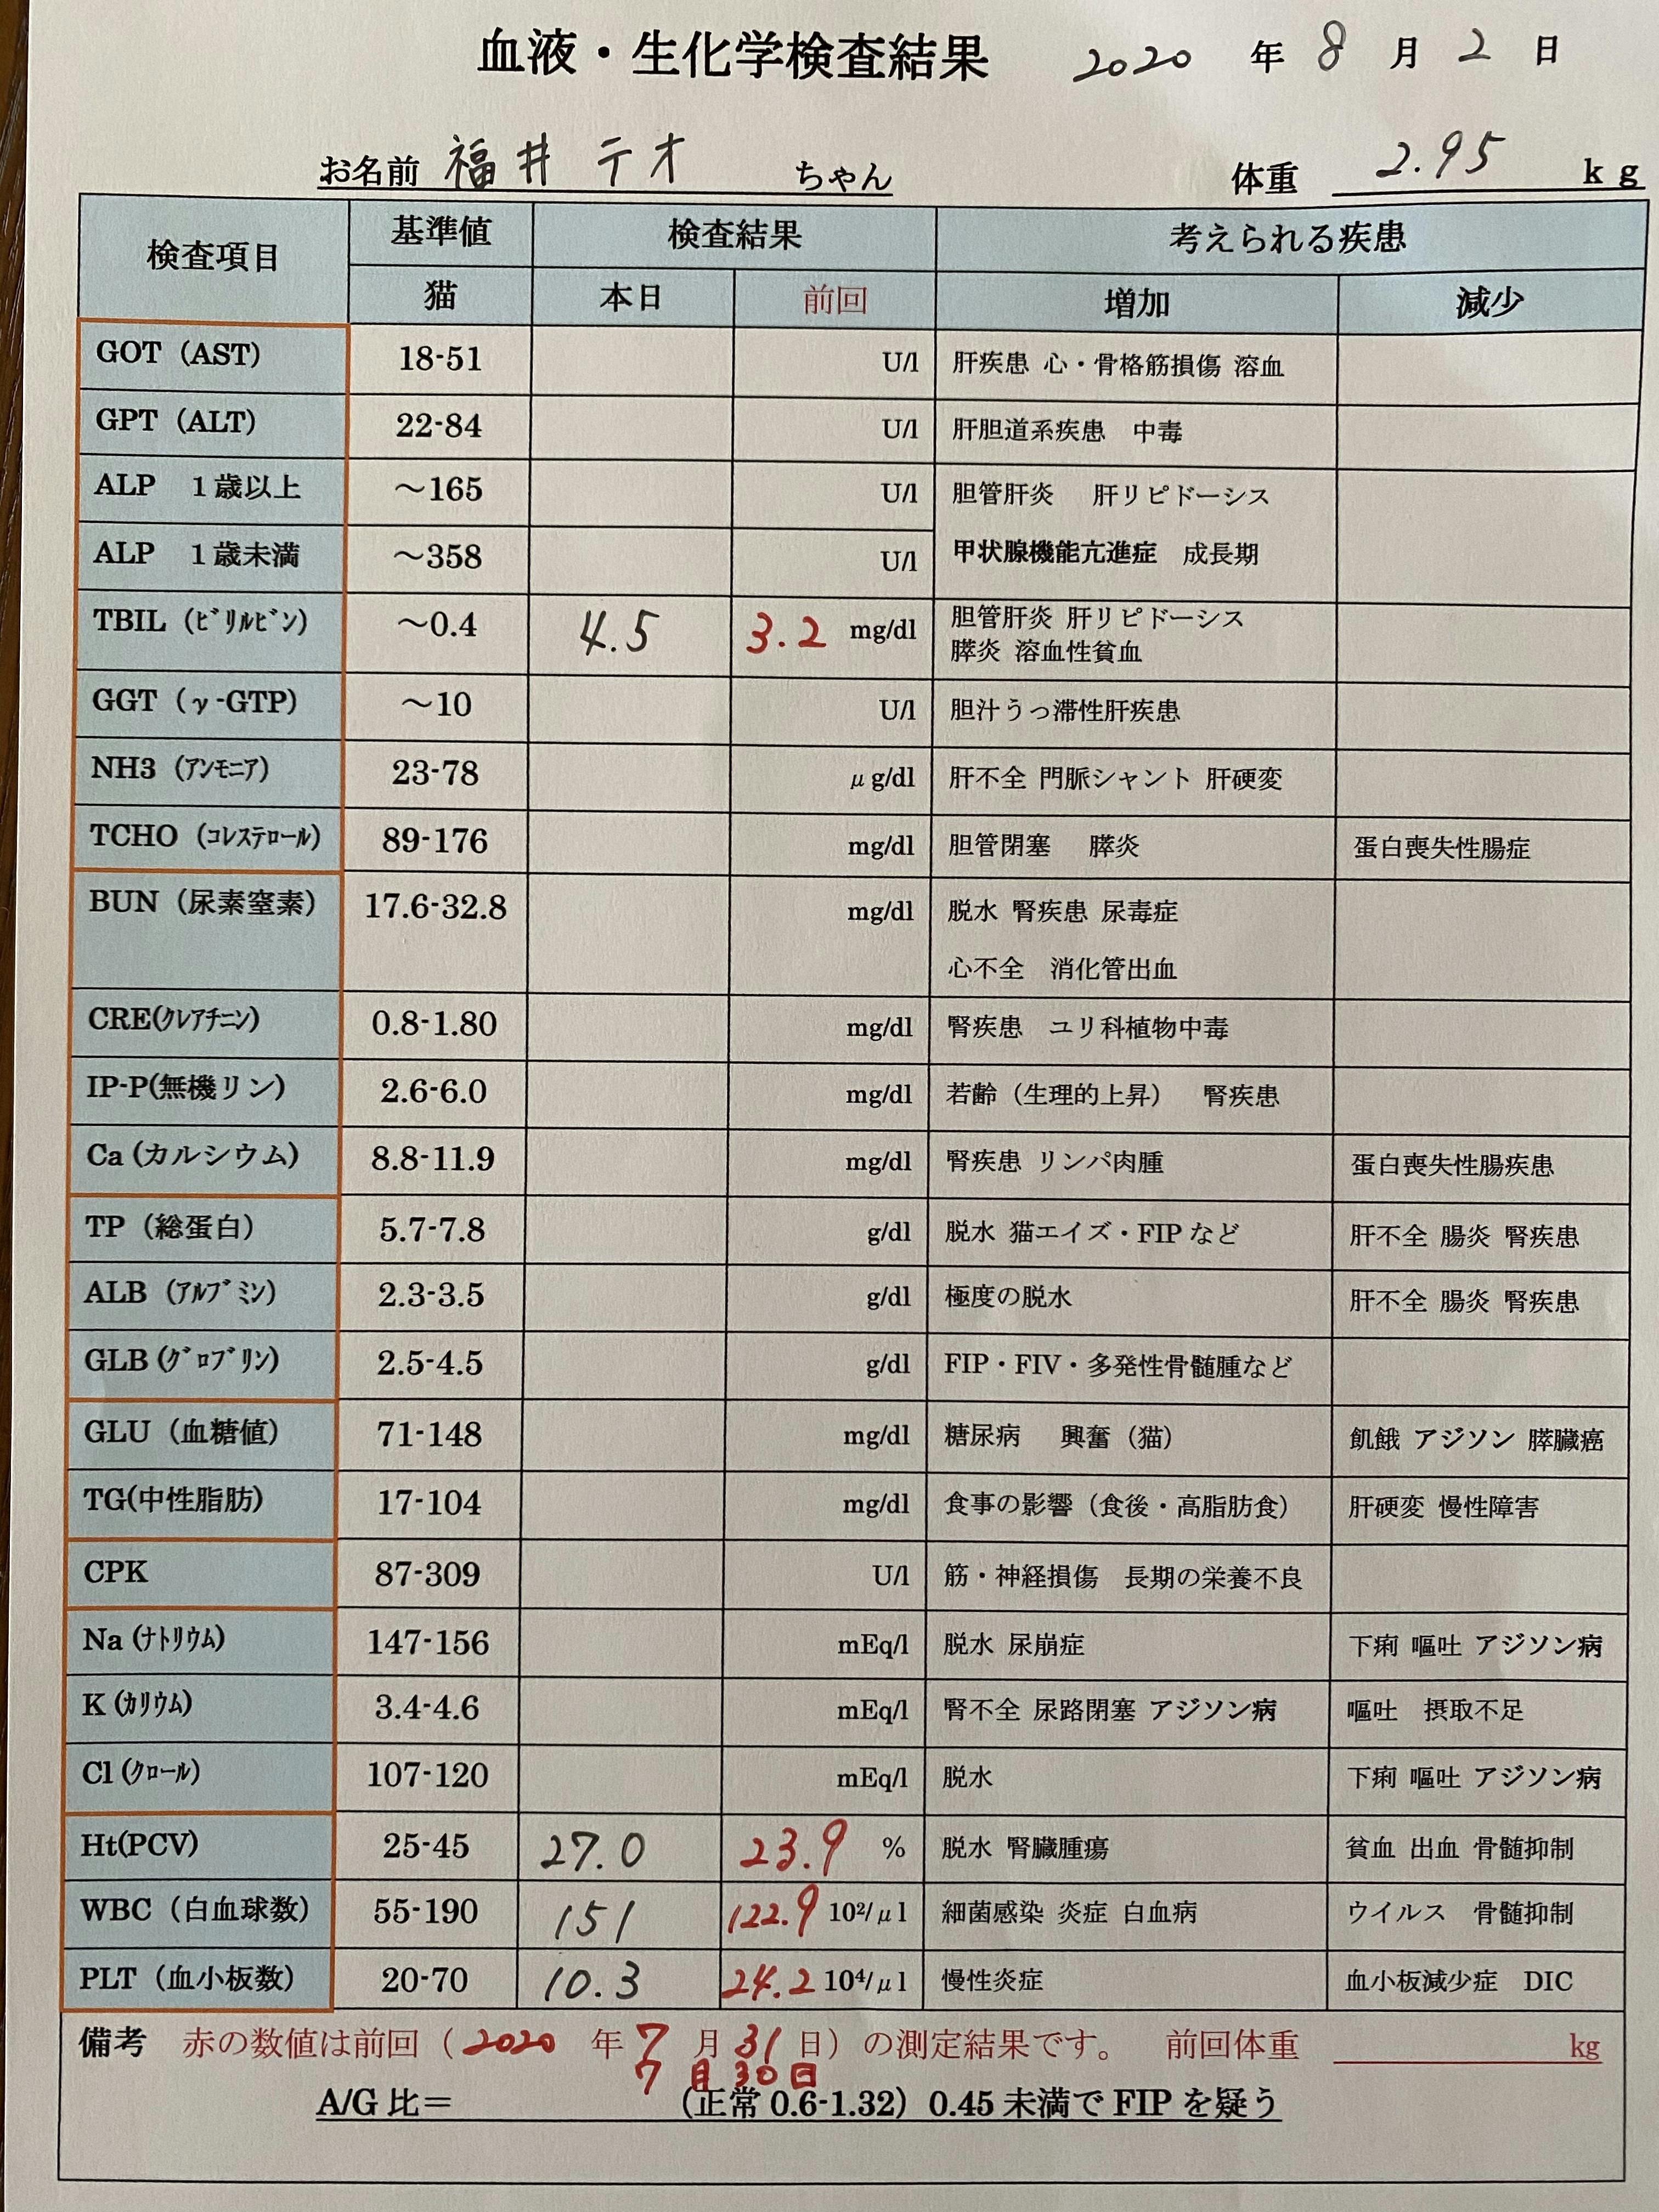 血液・生化学検査結果 2020 年 8 月 2 日
お名前 福井 テオ ちゃん 体重 2.95 kg
検査項目 基準値 検査結果 考えられる疾患
猫 本日 前回 増加 減少
GOT（AST） 18-51 U/l 肝疾患 心・骨格筋損傷 溶血
GPT（ALT） 22-84 U/l 肝胆道系疾患 中毒
ALP 1歳以上 ～165 U/l 胆管肝炎 肝リピドーシス
ALP 1歳未満 ～358 U/l 甲状腺機能亢進症 成長期
TBIL（ﾋﾞﾘﾙﾋﾞﾝ） ～0.4 4.5 3.2 mg/dl 胆管肝炎 肝リピドーシス
膵炎 溶血性貧血
GGT（γ-GTP） ～10 U/l 胆汁うっ滞性肝疾患
NH3（ｱﾝﾓﾆｱ） 23-78 μg/dl 肝不全 門脈シャント 肝硬変
TCHO（ｺﾚｽﾃﾛｰﾙ） 89-176 mg/dl 胆管閉塞 膵炎 蛋白喪失性腸症
BUN（尿素窒素） 17.6-32.8 mg/dl 脱水 腎疾患 尿毒症
心不全 消化管出血
CRE(ｸﾚｱﾁﾆﾝ) 0.8-1.80 mg/dl 腎疾患 ユリ科植物中毒
IP-P(無機リン) 2.6-6.0 mg/dl 若齢（生理的上昇） 腎疾患
Ca（カルシウム） 8.8-11.9 mg/dl 腎疾患 リンパ肉腫 蛋白喪失性腸疾患
TP（総蛋白） 5.7-7.8 g/dl 脱水 猫エイズ・FIP など 肝不全 腸炎 腎疾患
ALB（ｱﾙﾌﾞﾐﾝ） 2.3-3.5 g/dl 極度の脱水 肝不全 腸炎 腎疾患
GLB（ｸﾞﾛﾌﾞﾘﾝ） 2.5-4.5 g/dl FIP・FIV・多発性骨髄腫など
GLU（血糖値） 71-148 mg/dl 糖尿病 興奮（猫） 飢餓 アジソン 膵臓癌
TG(中性脂肪) 17-104 mg/dl 食事の影響（食後・高脂肪食） 肝硬変 慢性障害
CPK 87-309 U/l 筋・神経損傷 長期の栄養不良
Na（ﾅﾄﾘｳﾑ） 147-156 mEq/l 脱水 尿崩症 下痢 嘔吐 アジソン病
K（ｶﾘｳﾑ） 3.4-4.6 mEq/l 腎不全 尿路閉塞 アジソン病 嘔吐 摂取不足
Cl（ｸﾛｰﾙ） 107-120 mEq/l 脱水 下痢 嘔吐 アジソン病
Ht(PCV) 25-45 27.0 23.9 % 脱水 腎臓腫瘍 貧血 出血 骨髄抑制
WBC（白血球数） 55-190 151 122.9 10²/μl 細菌感染 炎症 白血病 ウイルス 骨髄抑制
PLT（血小板数） 20-70 10.3 24.2 10⁴/μl 慢性炎症 血小板減少症 DIC
備考 赤の数値は前回（2020 年 7 月 31 日）の測定結果です。 前回体重 kg
7 月 30 日
A/G 比＝ （正常 0.6-1.32）0.45 未満で FIP を疑う